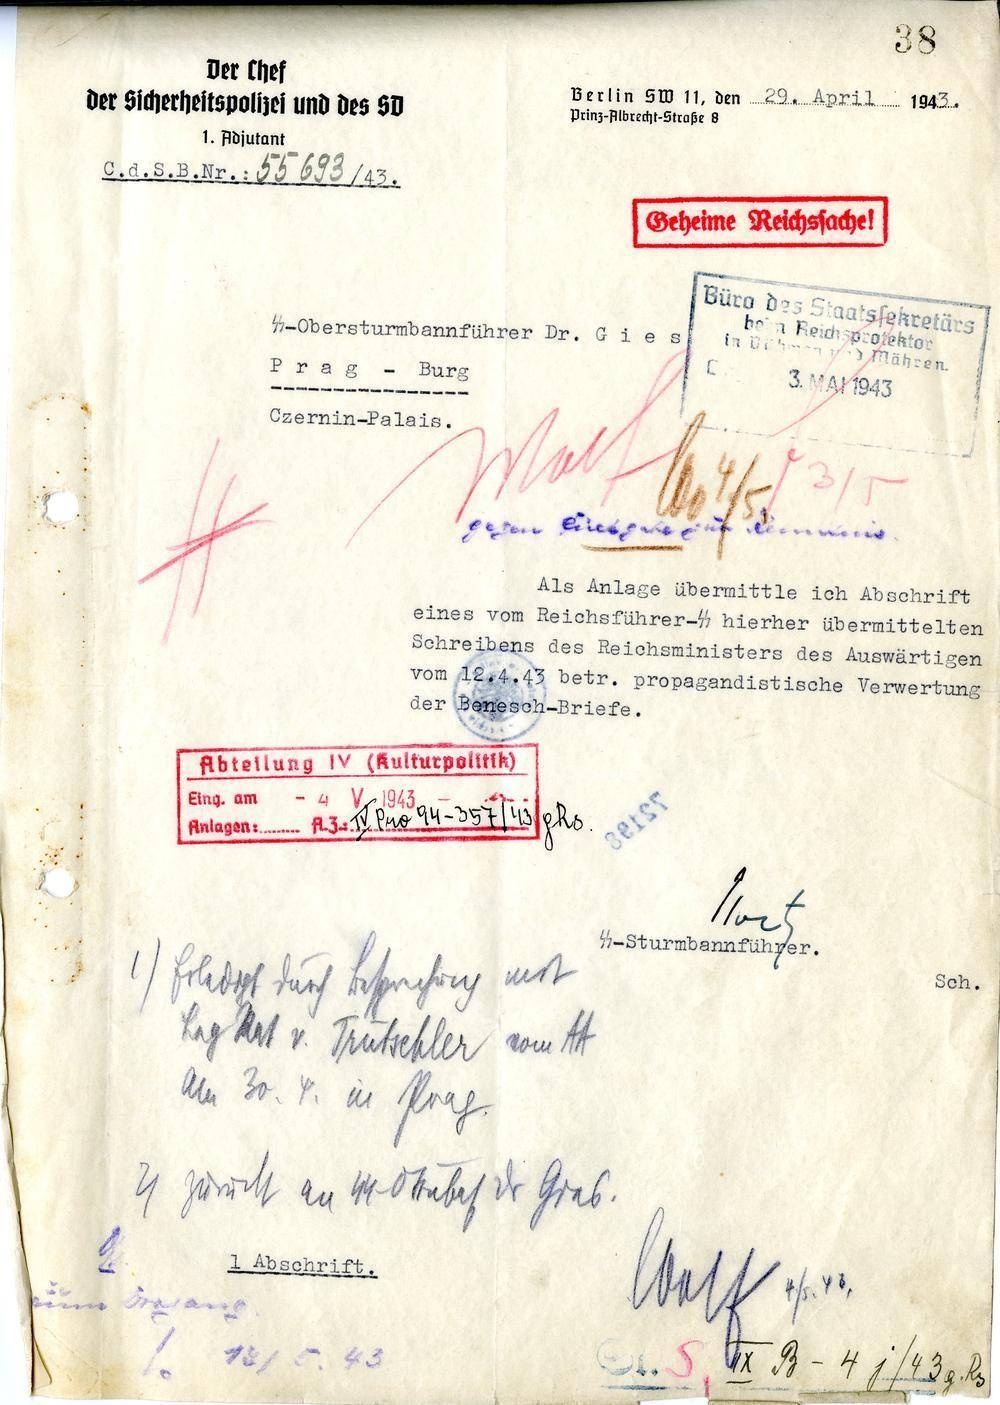 38
Der Chef
der Sicherheitspolizei und des SD
1. Adjutant
C.d.S.B.Nr.: 55 693/43.
Berlin SW 11, den 29. April 1943.
Prinz-Albrecht-Straße 8
Geheime Reichssache!
Büro des Staatssekretärs
beim Reichsprotektor
in Böhmen und Mähren.
3. MAI 1943
ᛋᛋ-Obersturmbannführer Dr. G i e s
P r a g - Burg
Czernin-Palais.
Wolf
Wo 4/5
3/5
gegen Rückgabe zur Kenntnis.
Als Anlage übermittle ich Abschrift
eines vom Reichsführer-ᛋᛋ hierher übermittelten
Schreibens des Reichsministers des Auswärtigen
vom 12.4.43 betr. propagandistische Verwertung
der Benesch-Briefe.
Abteilung IV (Kulturpolitik)
Eing. am - 4 V 1943
Anlagen: A.Z.: IV Pro 94-357/43 gRs.
ᛋᛋ-Sturmbannführer.
Sch.
1) Erledigt durch Besprechung mit
Leg Rat v. Trütschler vom AA
am 30. 4. in Prag.
2) zurück an ᛋᛋ-Ostubaf Dr Gies.
1 Abschrift.
Wolf 4/5. 43.
zum Vorgang.
13/5. 43
St. S. IX B - 4 j/43 g.Rs